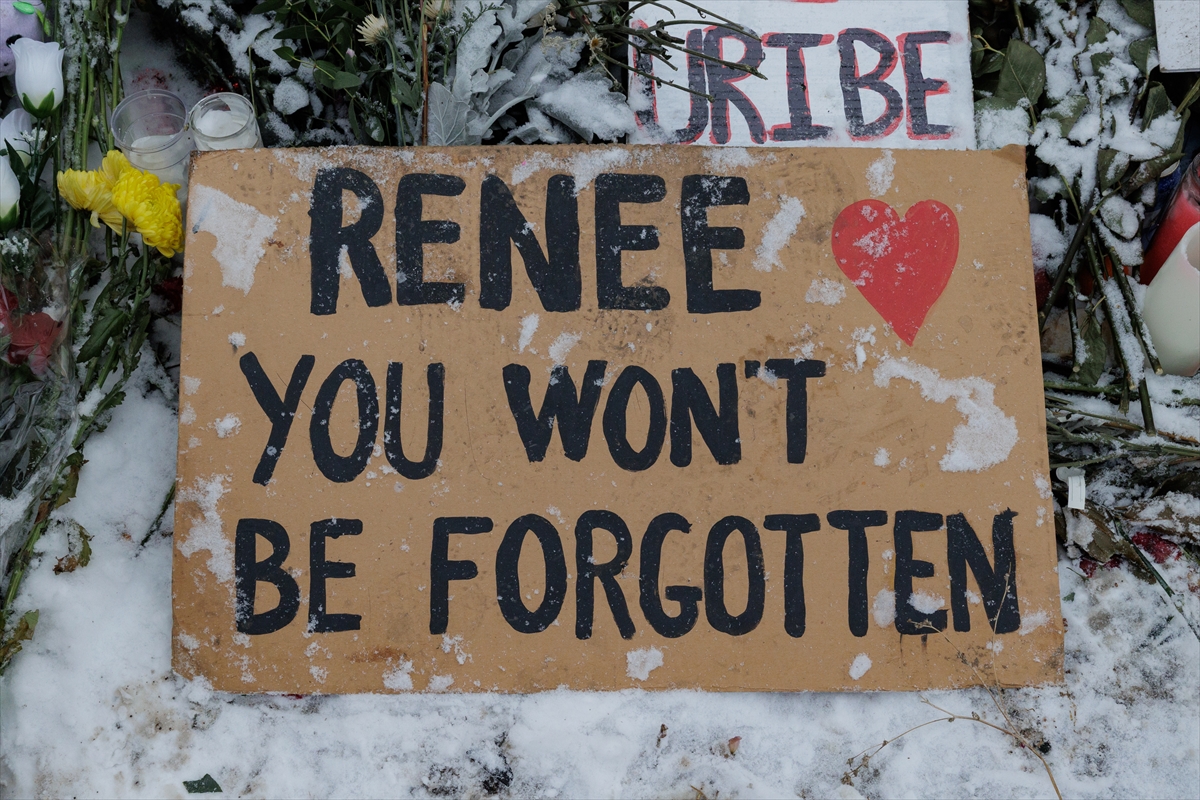 URIBE
RENEE
YOU WON'T
BE FORGOTTEN